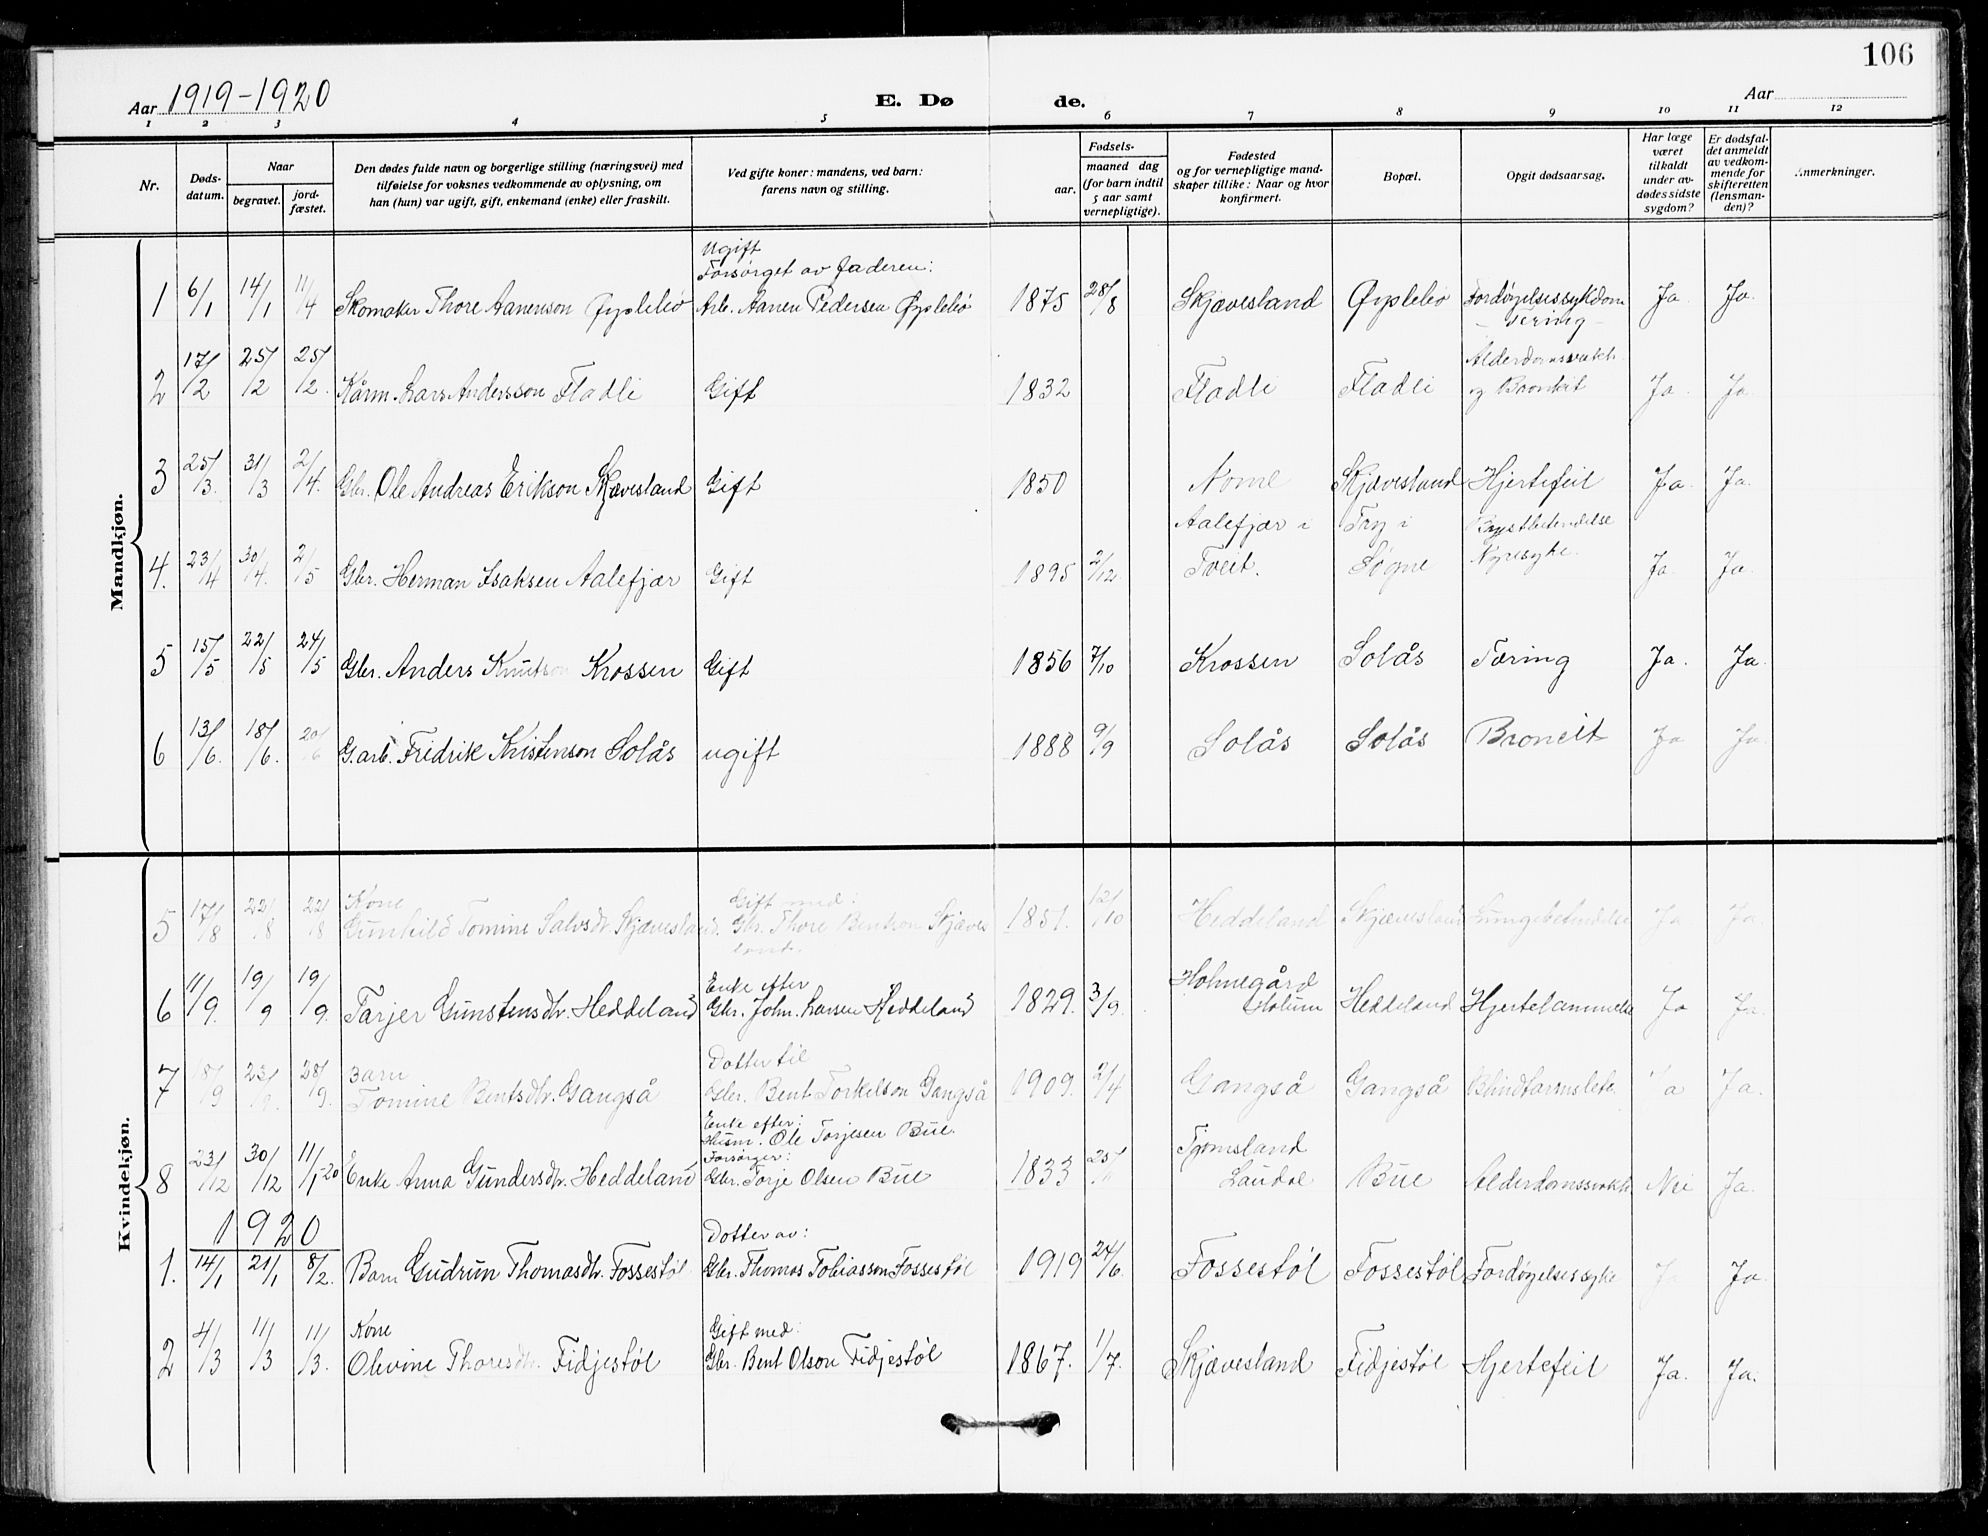 106
Aar 1919-1920
E. Dø de.
Aar
1 2 3 4 5 6 7 8 9 10 11 12
Nr.
Døds-
datum.
Naar
begravet.
jord-
fæstet.
Den dødes fulde navn og borgerlige stilling (næringsvei) med
tilføielse for voksnes vedkommende av oplysning, om
han (hun) var ugift, gift, enkemand (enke) eller fraskilt.
Ved gifte koner: mandens, ved barn:
farens navn og stilling.
Fødsels-
aar.
maaned dag
(for barn indtil
5 aar samt
vernepligtige).
Fødested
og for vernepligtige mand-
skaper tillike: Naar og hvor
konfirmert.
Bopæl.
Opgit dødsaarsag.
Har læge
været
tilkaldt
under av-
dødes sidste
sygdom?
Er dødsfal-
det anmeldt
av vedkom-
mende for
skifteretten
(lensman-
den)?
Anmerkninger.
Mandkjøn.
Ugift
Forsørget av Faderen:
1 6/1 14/1 11/4 Skomaker Thore Aanenson Øyslebø Arb. Aanen Pedersen Øyslebø 1875 28/8 Skjævesland Øyslebø Fordøyelsessykdom Ja Ja.
- Tæring -
2 17/2 25/2 25/2. Kårm. Lars Andersson Fladli Gift 1832 Fladli Fladli Alderdomssvakh. Ja. Ja
og Bronkit
3 25/3. 31/3 2/4. Gbr. Ole Andreas Erikson Skjævesland Gift 1850 Nome Skjævesland Hjertefeil Ja. Ja.
Aalefjær i Try i Brystbetendelse
4. 23/4 30/4. 2/5 Gbr. Herman Isaksen Aalefjær Gift 1895 2/12. Tveit. Søgne Nyresyke. Ja. Ja.
5 15/5 22/5 24/5 Gbr. Anders Knutson Krossen Gift 1856 7/10 Krossen Solås Tæring Ja. Ja.
6 13/6. 18/6. 20/6 G.arb. Fridrik Kristenson Solås ugift 1888 9/9 Solås Solås Broncit Ja Ja
Kvindekjøn.
Kone Gift med:
5 17/8 22/8 22/8 Gunhild Tomine Salvsdtr. Skjævesland. Gbr. Thore Bentson Skjæves 1851. 12/10 Heddeland Skjævesland Lungebetendelse Ja Ja.
land.
Enke efter Holmegård
6 11/9. 19/9 19/9. Tarjer Gunstensdtr. Heddeland Gbr. John Larsen Heddeland 1829. 3/9. Holum Heddeland Hjertelammelse Ja Ja.
Barn Dotter til
7 18/9 23/9. 28/9. Tomine Bentsdtr. Gangså Gbr. Bent Torkelson Gangså 1909. 2/4 Gangså Gangså Blindtarmsbete. Ja Ja.
Enke efter:
Husm. Ole Torjesen Bue.
Forsørger: Tjomsland
8 23/12 30/12 11/1-20 Enke Anna Gundersdtr. Heddeland Gbr. Torje Olsen Bue 1833 25/11 Laudal Bue Alderdomssvakh. Nei Ja.
1920
Dotter av:
1. 14/1 21/1 8/2. Barn Gudrun Thomasdtr. Fossestøl Gbr. Thomas Tobiasson Fossestøl 1919 24/6. Fossestøl Fossestøl Fordøyelsessyke Ja Ja.
Kone Gift med:
2 4/3 11/3 11/3. Olevine Thoresdtr. Fidjestøl Gbr. Bent Olson Fidjestøl 1867. 1/7. Skjævesland Fidjestøl Hjertefeil Ja. Ja.